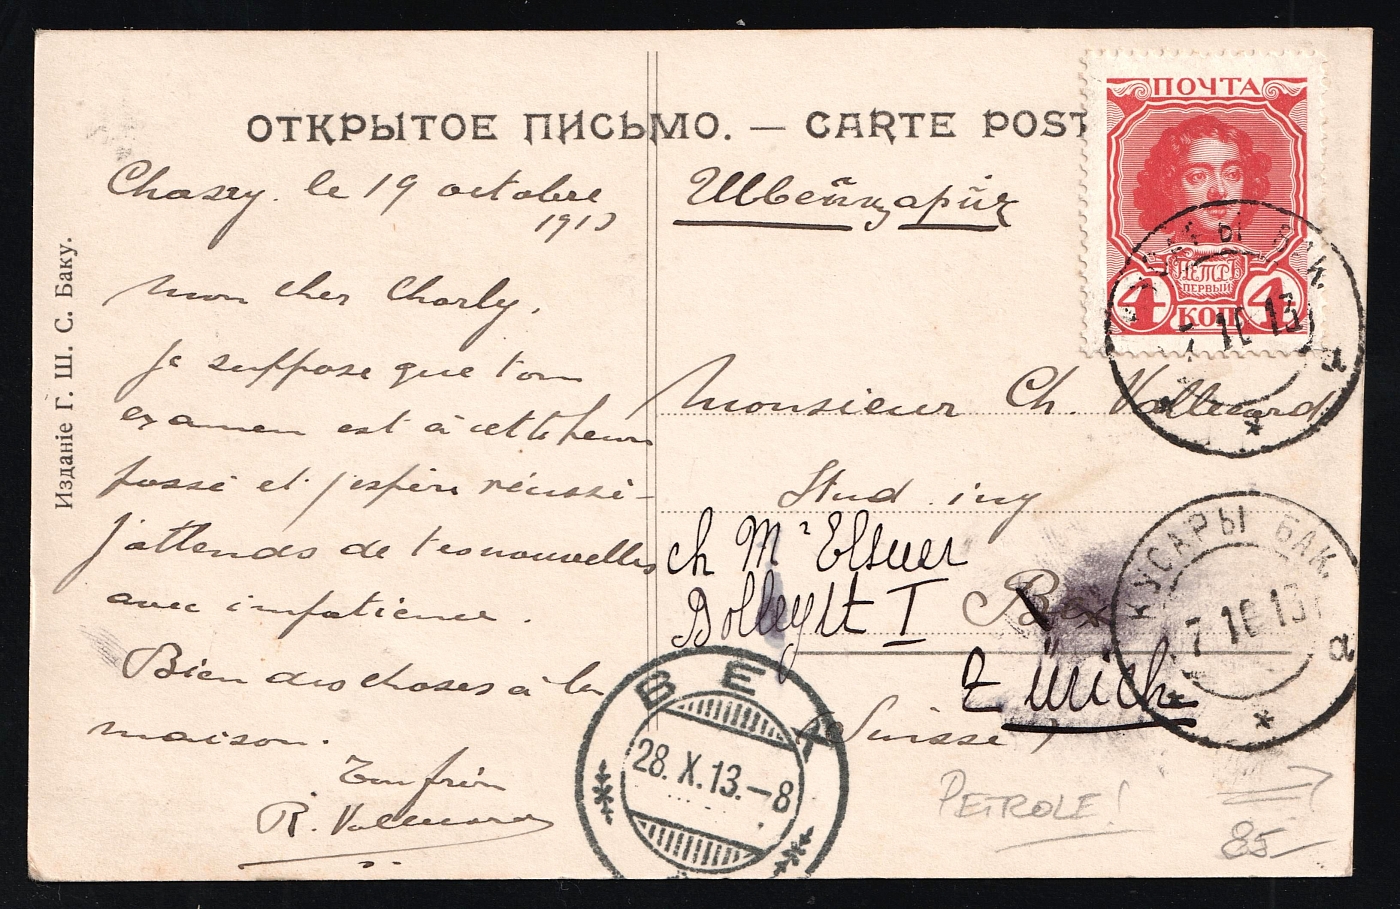 ОТКРЫТОЕ ПИСЬМО. — CARTE POST
Chasry. le 19 octobre
1913
Mon cher Charly,
Je suppose que ton
examen est à cette heure
passé et j'espère réussi-
J'attends de tes nouvelles
avec impatience.
Bien des choses à la
maison.
Ton frère
R.
Издание Г. Ш. С. Баку.
Швейцарія
ПОЧТА
ПЕТРЪ
ПЕРВЫЙ
4 КОП 4
КУСАРЫ БАК.
7 10 13
а
Monsieur Ch.
Stud. ing
ch Mr Elsner
Bolleystr I
Bex
Zürich
(Suisse)
КУСАРЫ БАК.
7 10 13
а
BEX
28.X.13.-8
PETROLE!
85